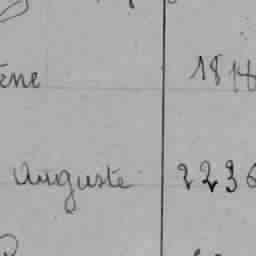 ène 1814
Auguste 2236